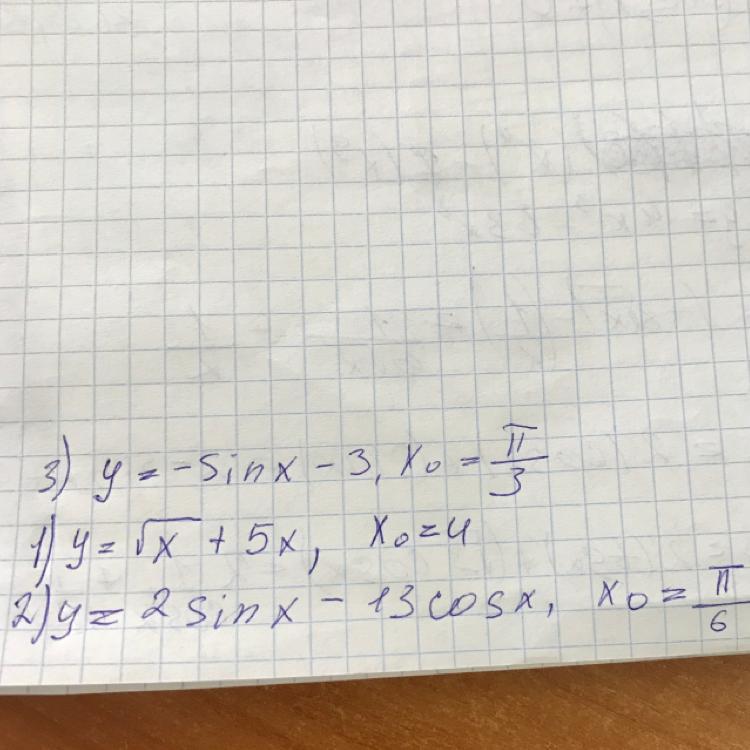 3) y = -sinx - 3, x₀ = π/3
1) y = √x + 5x, x₀ = 4
2) y = 2sinx - 13cosx, x₀ = π/6